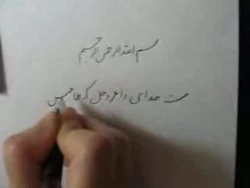 بسم الله الرحمن الرحیم
منت خدای را عز و جل که طاعتش